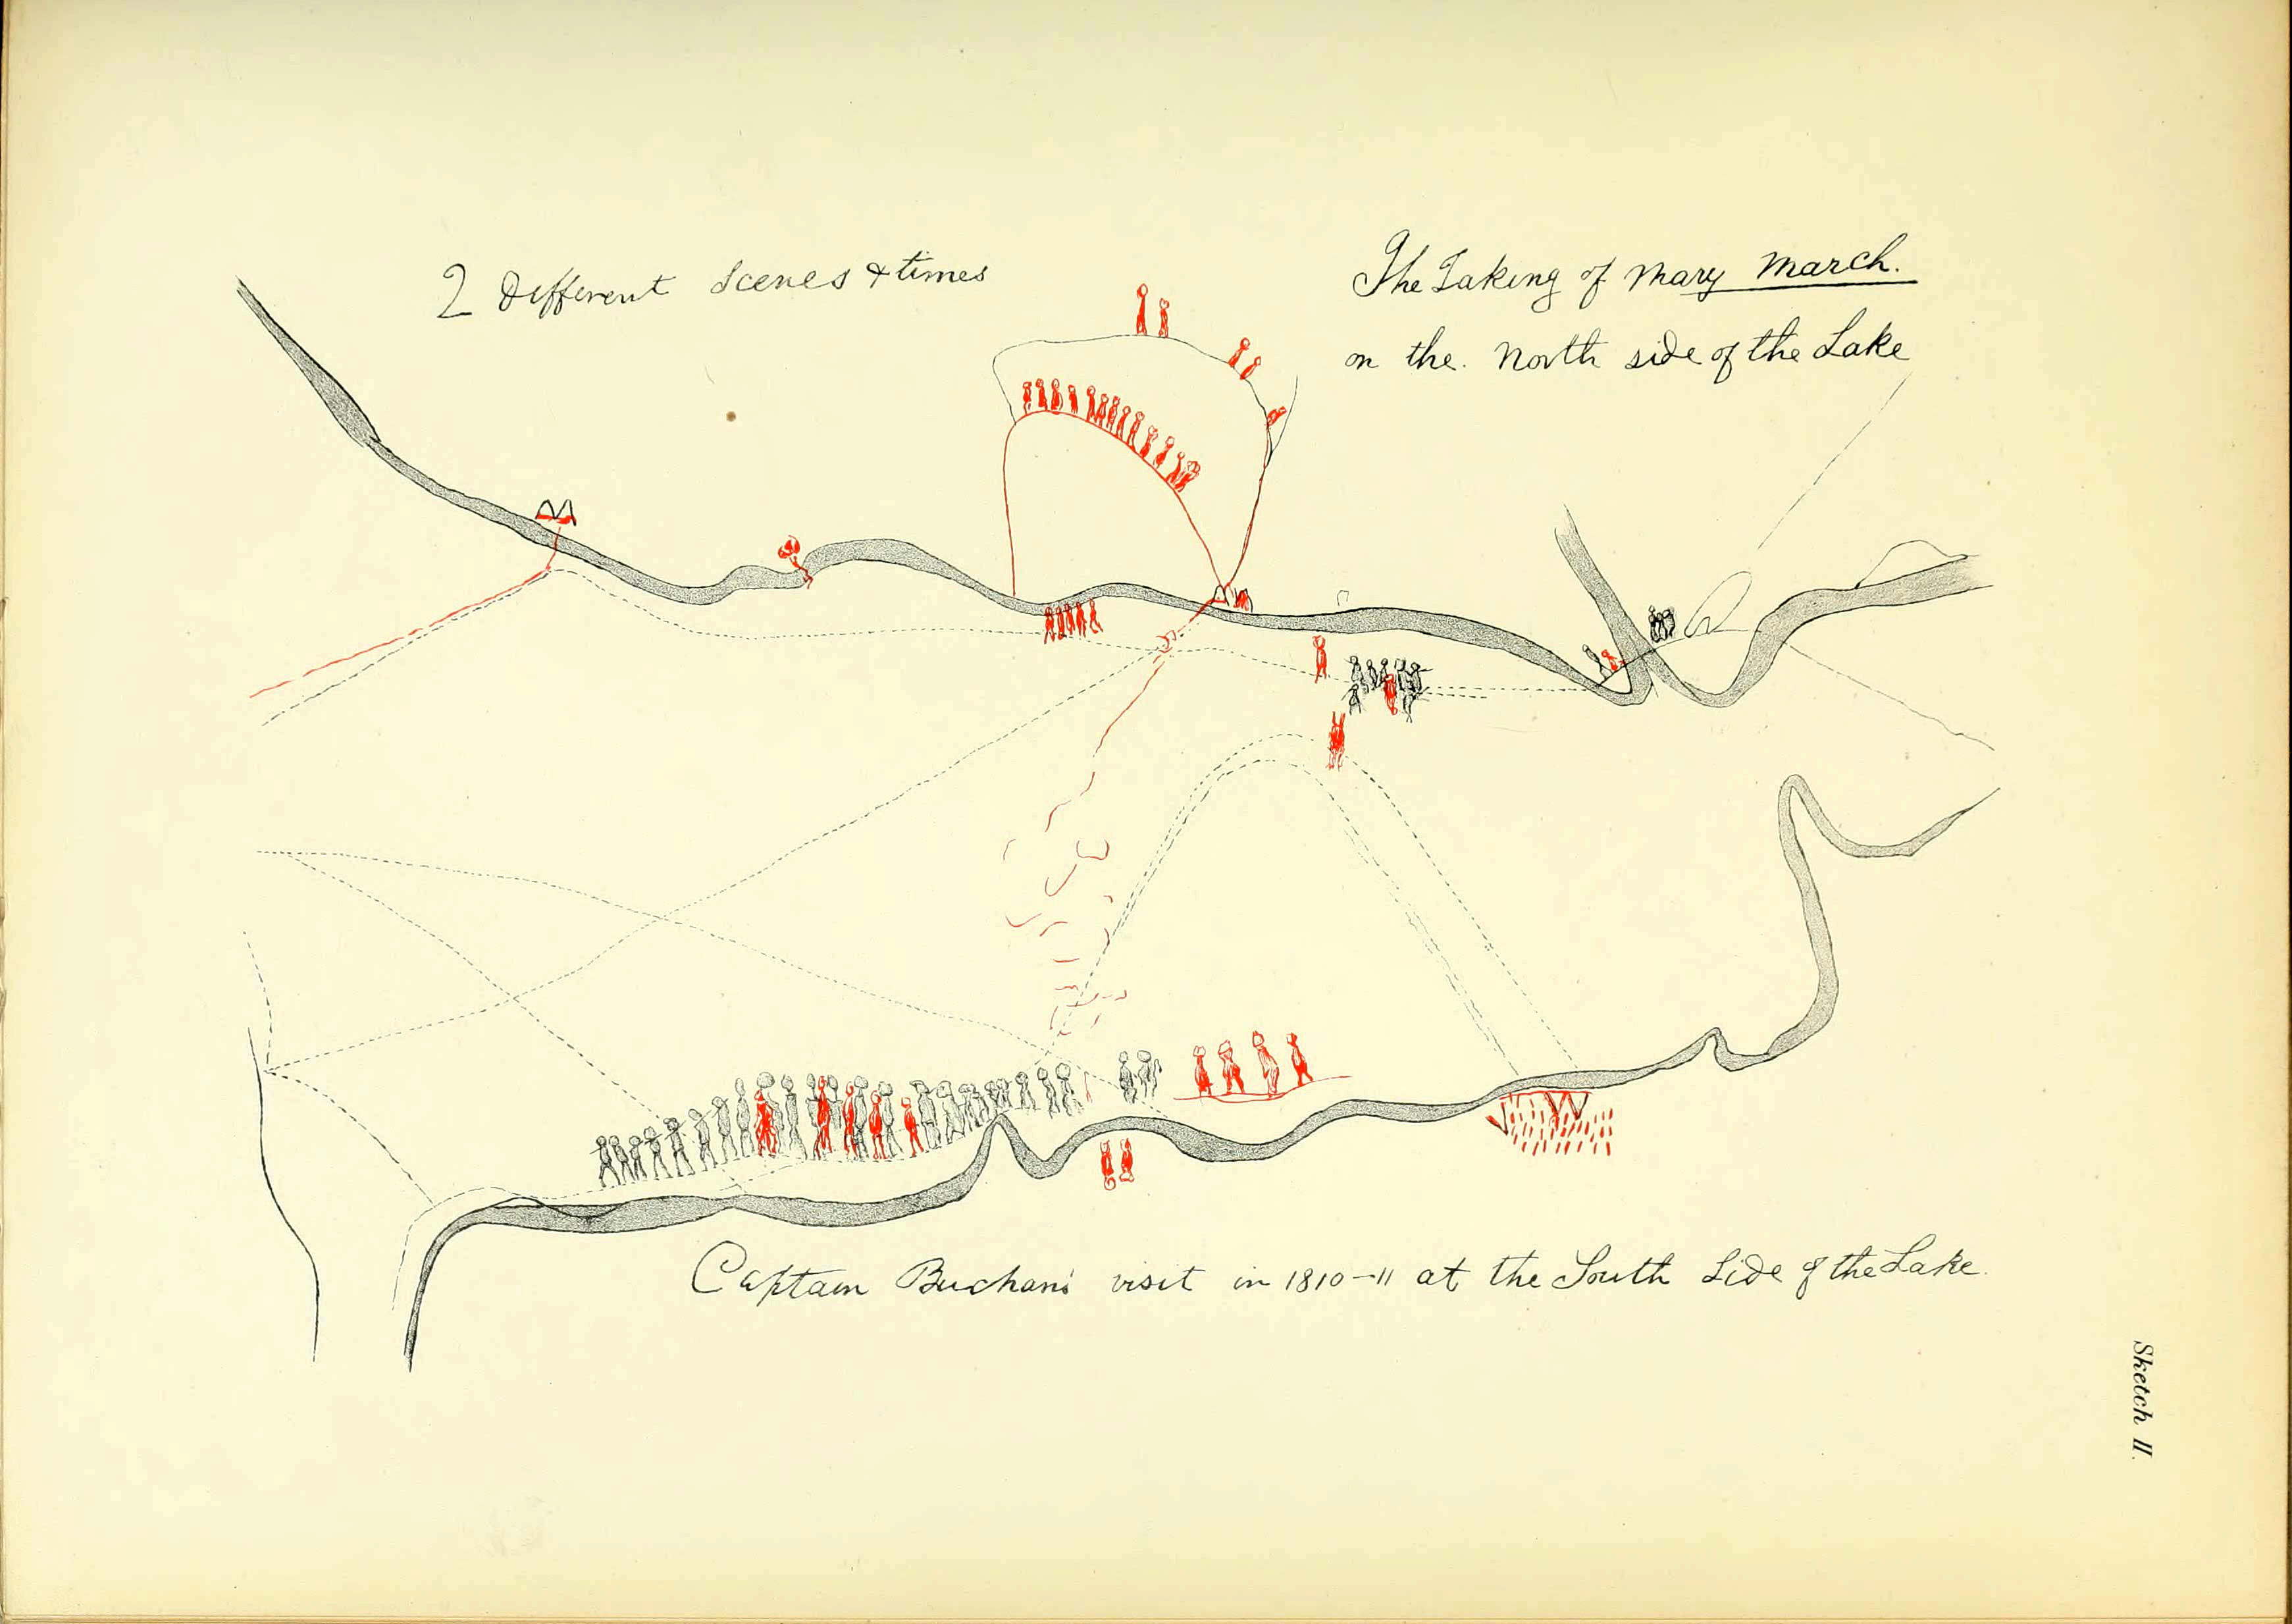 2 Different Scenes & times
The Taking of Mary March.
on the. North side of the Lake
Captain Buchan's visit in 1810-11 at the South Side of the Lake.
Sketch II.